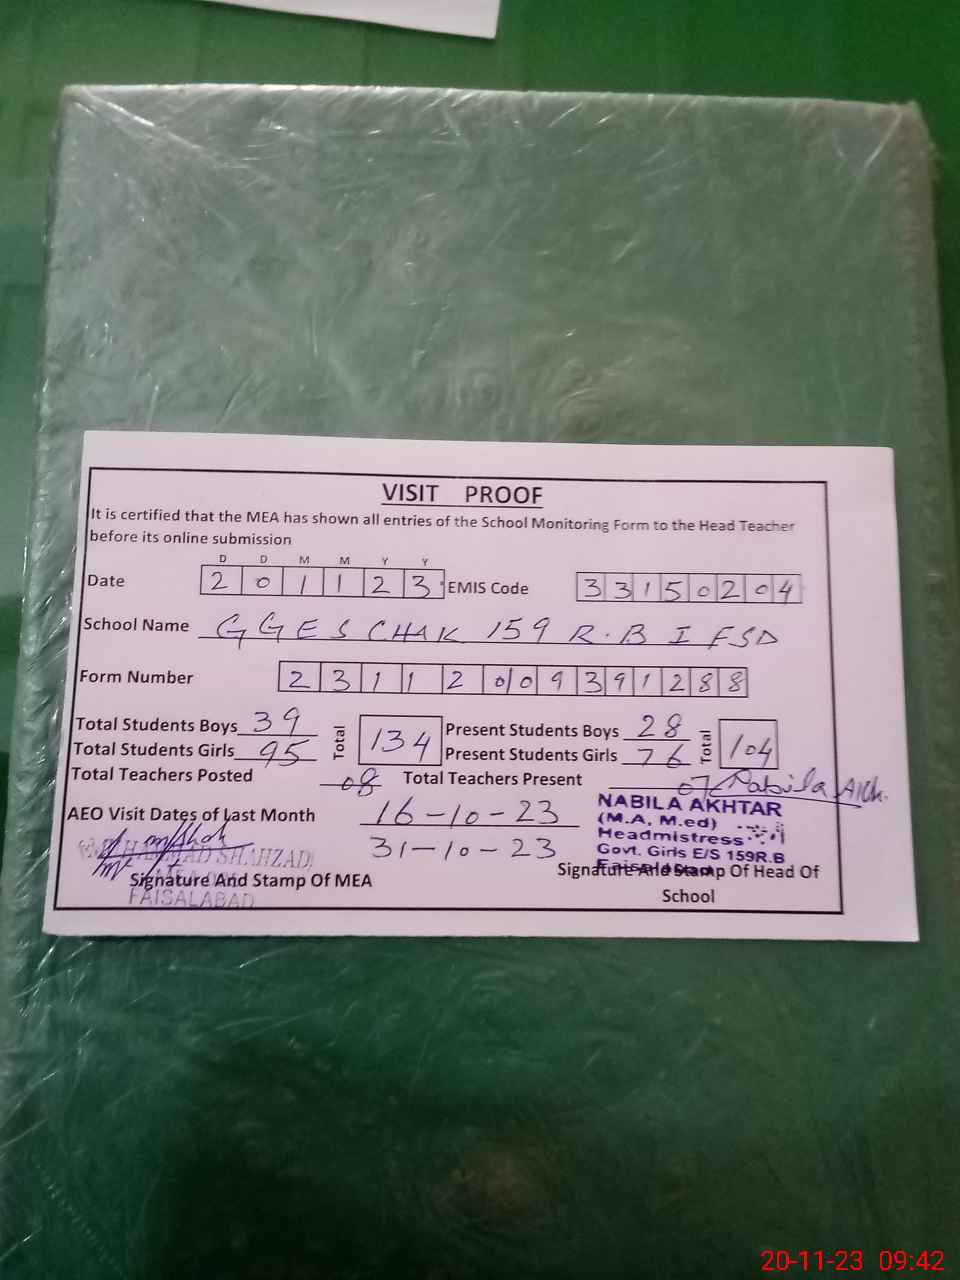 VISIT PROOF
It is certified that the MEA has shown all entries of the School Monitoring Form to the Head Teacher
before its online submission
D D M M Y Y
Date 2 0 1 1 2 3 EMIS Code 3 3 1 5 0 2 0 4
School Name GGES CHAK 159 R.B I FSD
Form Number 2 3 1 1 2 0 0 9 3 9 1 2 8 8
Total Students Boys 39 Total 134 Present Students Boys 28 Total 104
Total Students Girls 95 Present Students Girls 76
Total Teachers Posted 08 Total Teachers Present 07 Nabila Akh.
AEO Visit Dates of Last Month 16-10-23
31-10-23
NABILA AKHTAR
(M.A, M.ed)
Headmistress
Govt. Girls E/S 159R.B
Faisalabad
MUHAMMAD SHAHZAD
MEA
FAISALABAD
Signature And Stamp Of MEA
Signature And Stamp Of Head Of
School
20-11-23 09:42